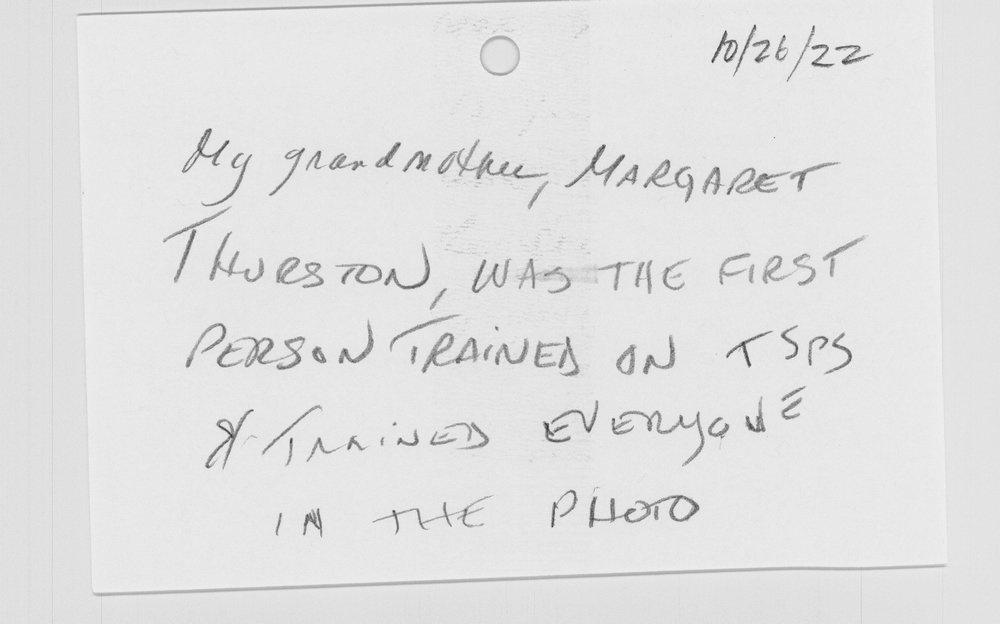 10/26/22
My grandmother, MARGARET
THURSTON, WAS THE FIRST
PERSON TRAINED ON TSPS
& TRAINED EVERYONE
IN THE PHOTO